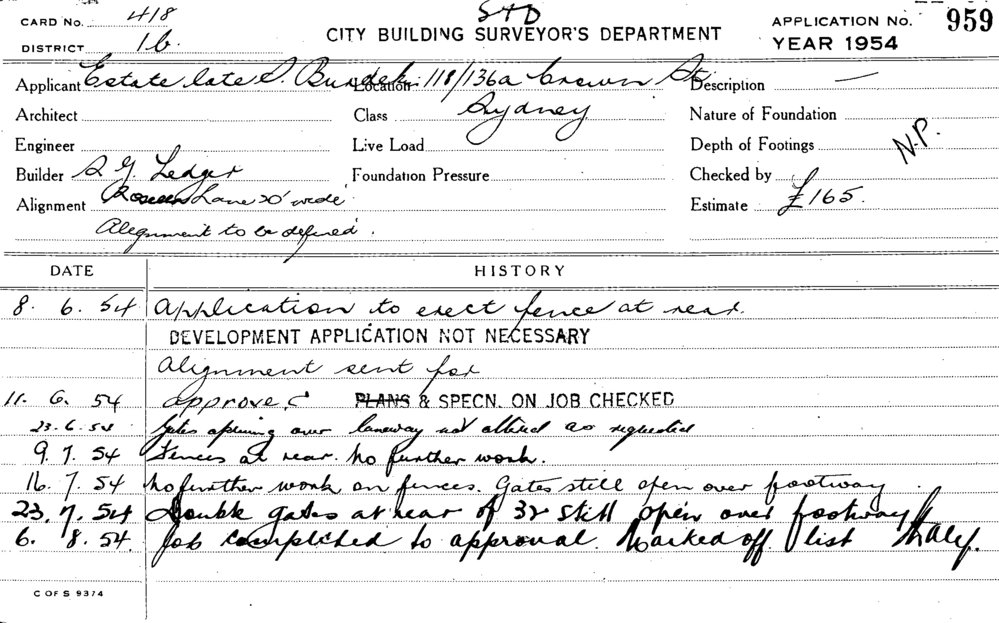 CARD No. 418
DISTRICT 16.
STD
CITY BUILDING SURVEYOR'S DEPARTMENT
APPLICATION No. 959
YEAR 1954
Applicant Estate late S. Location 118/136a Crown St. Description —
Architect Class Sydney Nature of Foundation
Engineer Live Load Depth of Footings N.P.
Builder S G. Ledger Foundation Pressure Checked by
Alignment Lane 20' wide Estimate £165.
Alignment to be defined.
DATE HISTORY
8. 6. 54 Application to erect fence at rear.
DEVELOPMENT APPLICATION NOT NECESSARY
Alignment sent for
11. 6. 54 Approved PLANS & SPECN. ON JOB CHECKED
23.6.54 Gates opening over laneway not altered as requested
9. 7. 54 Fences at rear. No further work.
16. 7. 54 No further work on fences. Gates still open over footway.
23. 7. 54 Double gates at rear of 32 still open over footway
6. 8. 54. Job completed to approval. Marked off list
C OF S 9374